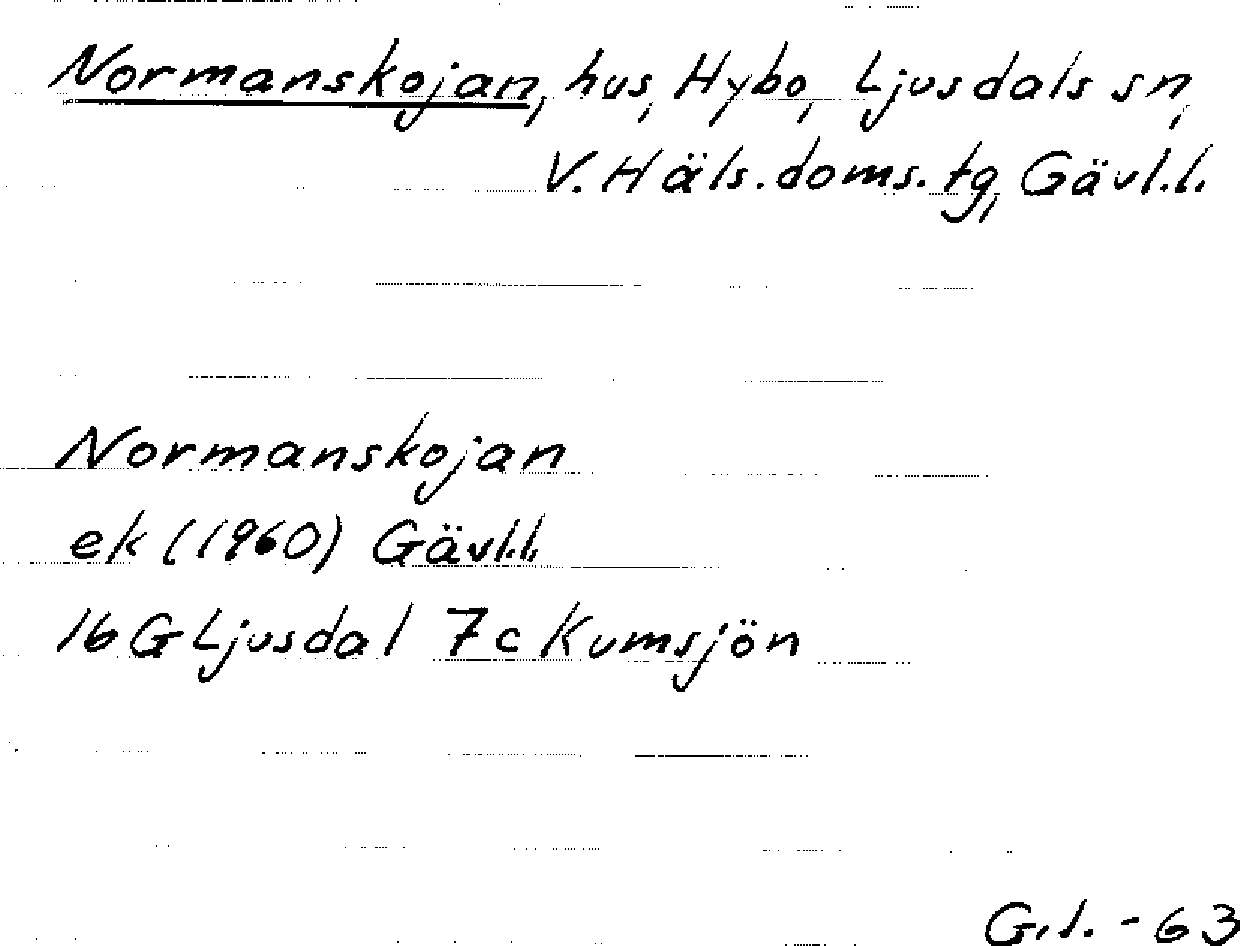 Normanskojan, hus, Hybo, Ljusdals sn,
V. Häls. doms. tg, Gävl.l.
Normanskojan
ek (1960) Gävl.l.
16 G Ljusdal 7c Kumsjön
G.l. - 63